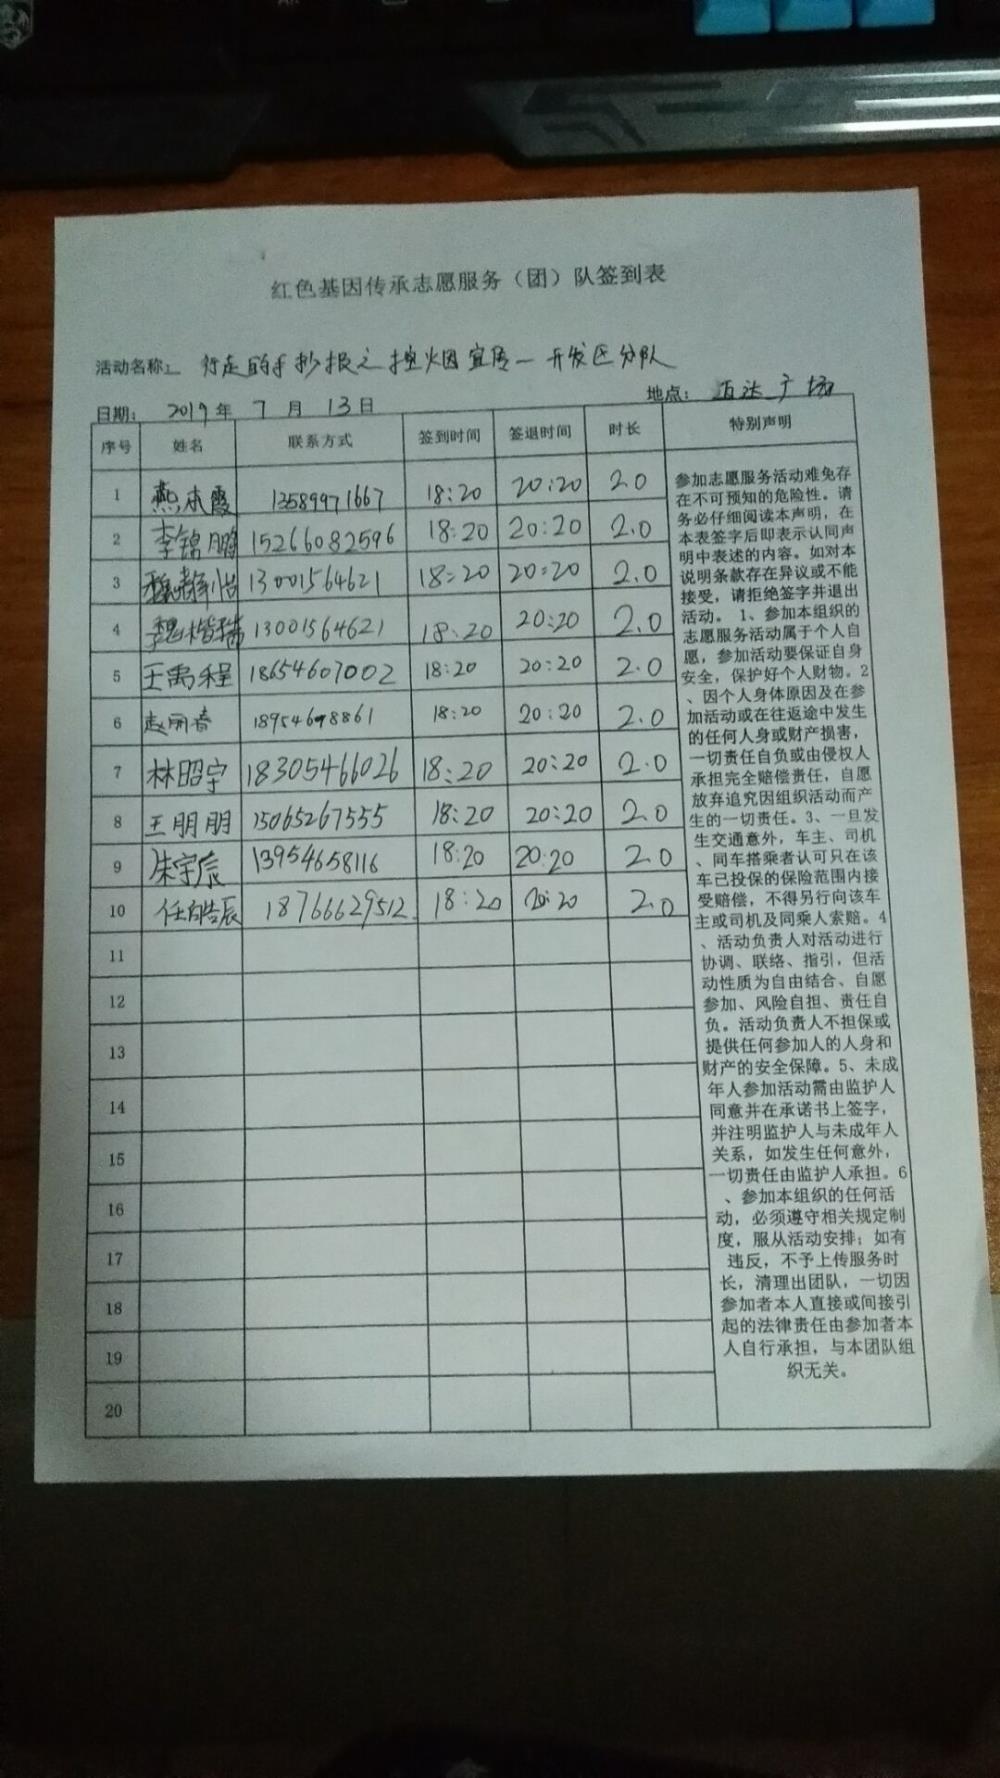 红色基因传承志愿服务（团）队签到表
活动名称： 行走的手抄报之控烟宣传一开发区分队
日期： 2019年 7 月 13日 地点： 万达广场
序号 姓名 联系方式 签到时间 签退时间 时长 特别声明
1 燕本霞 13589971667 18:20 20:20 2.0
2 李锦鹏 15266082596 18:20 20:20 2.0
3 13001564621 18:20 20:20 2.0
4 魏楷瑞 13001564621 18:20 20:20 2.0
5 王禹程 18654607002 18:20 20:20 2.0
6 赵丽春 18954698861 18:20 20:20 2.0
7 林昭宇 18305466026 18:20 20:20 2.0
8 王朋朋 15065267555 18:20 20:20 2.0
9 朱宇辰 13954658116 18:20 20:20 2.0
10 任皓辰 18766629512 18:20 20:20 2.0
11
12
13
14
15
16
17
18
19
20
参加志愿服务活动难免存
在不可预知的危险性。请
务必仔细阅读本声明，在
本表签字后即表示认同声
明中表述的内容。如对本
说明条款存在异议或不能
接受，请拒绝签字并退出
活动。 1、参加本组织的
志愿服务活动属于个人自
愿，参加活动要保证自身
安全，保护好个人财物。2
、因个人身体原因及在参
加活动或在往返途中发生
的任何人身或财产损害，
一切责任自负或由侵权人
承担完全赔偿责任，自愿
放弃追究因组织活动而产
生的一切责任。3、一旦发
生交通意外，车主、司机
、同车搭乘者认可只在该
车已投保的保险范围内接
受赔偿，不得另行向该车
主或司机及同乘人索赔。4
、活动负责人对活动进行
协调、联络、指引，但活
动性质为自由结合、自愿
参加、风险自担、责任自
负。活动负责人不担保或
提供任何参加人的人身和
财产的安全保障。5、未成
年人参加活动需由监护人
同意并在承诺书上签字，
并注明监护人与未成年人
关系，如发生任何意外，
一切责任由监护人承担。6
、参加本组织的任何活
动，必须遵守相关规定制
度，服从活动安排；如有
违反，不予上传服务时
长，清理出团队，一切因
参加者本人直接或间接引
起的法律责任由参加者本
人自行承担，与本团队组
织无关。